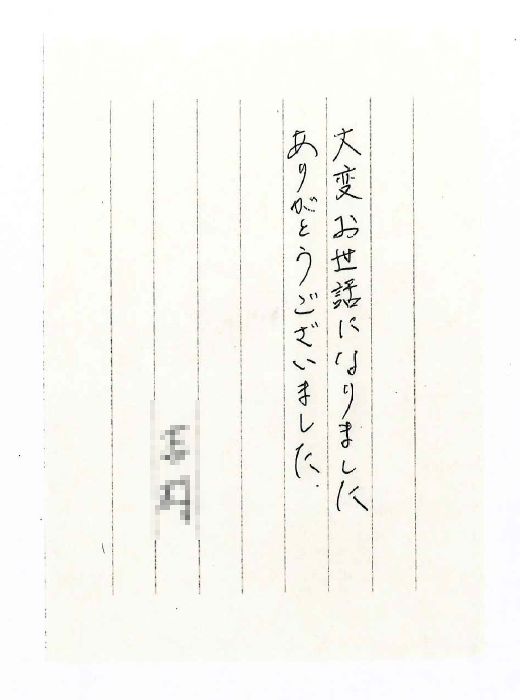 大変お世話になりました
ありがとうございました.